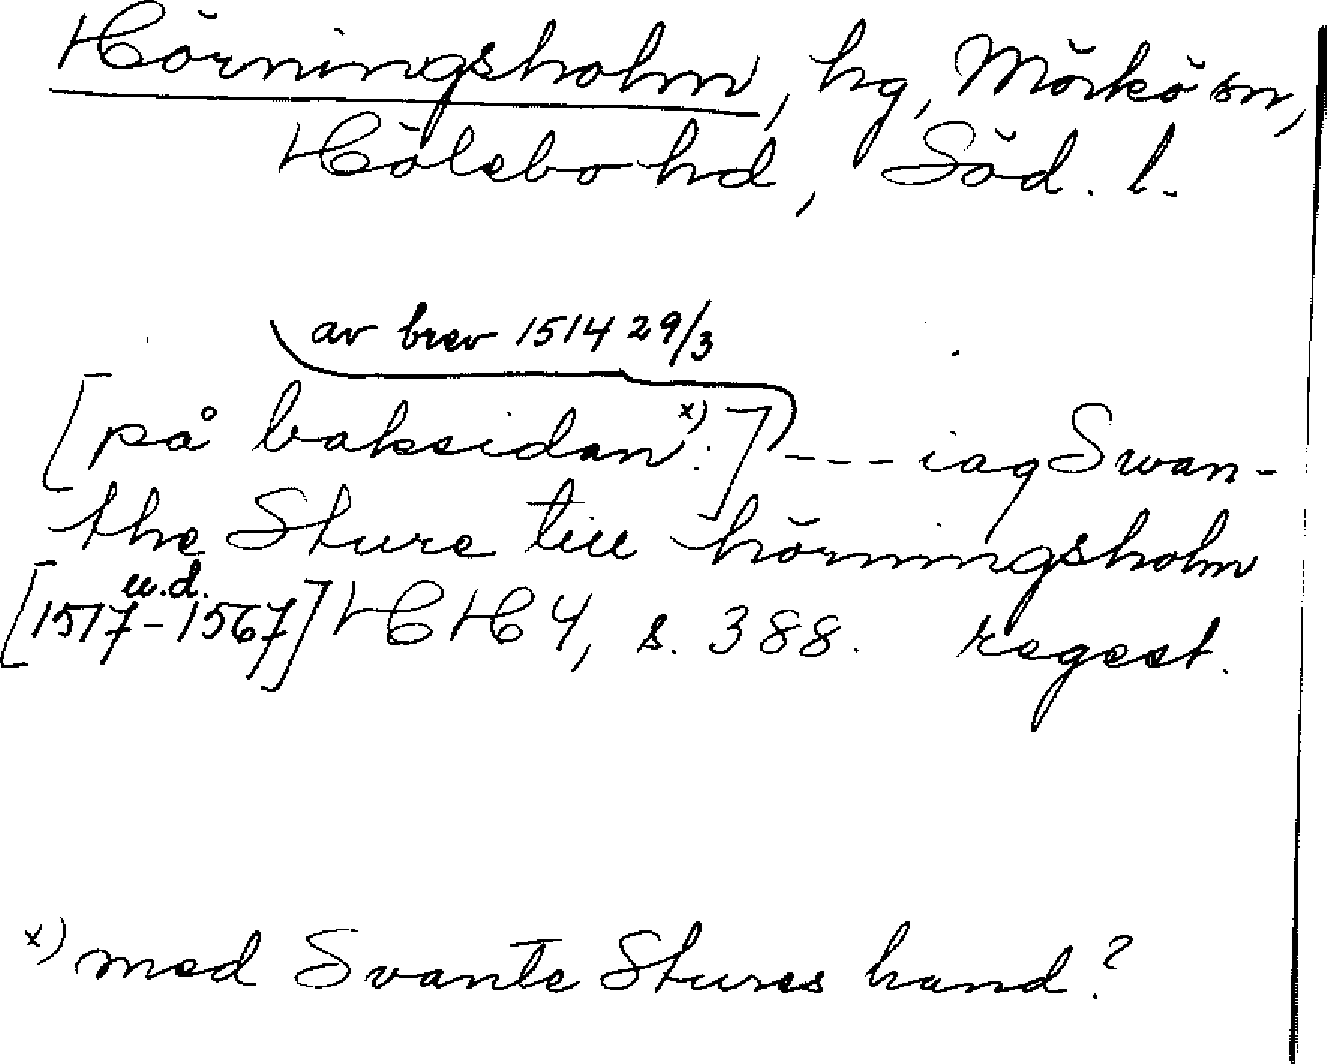 Hörningsholm, hg, Mörkö sn,
Hölebo hd, Söd. l.
av brev 1514 29/3
[på baksidan x):] --- iag Swan-
the Sture till hörningsholm
u.d.
[1517-1567] HH 4, s. 388. regest.
x) med Svante Stures hand?